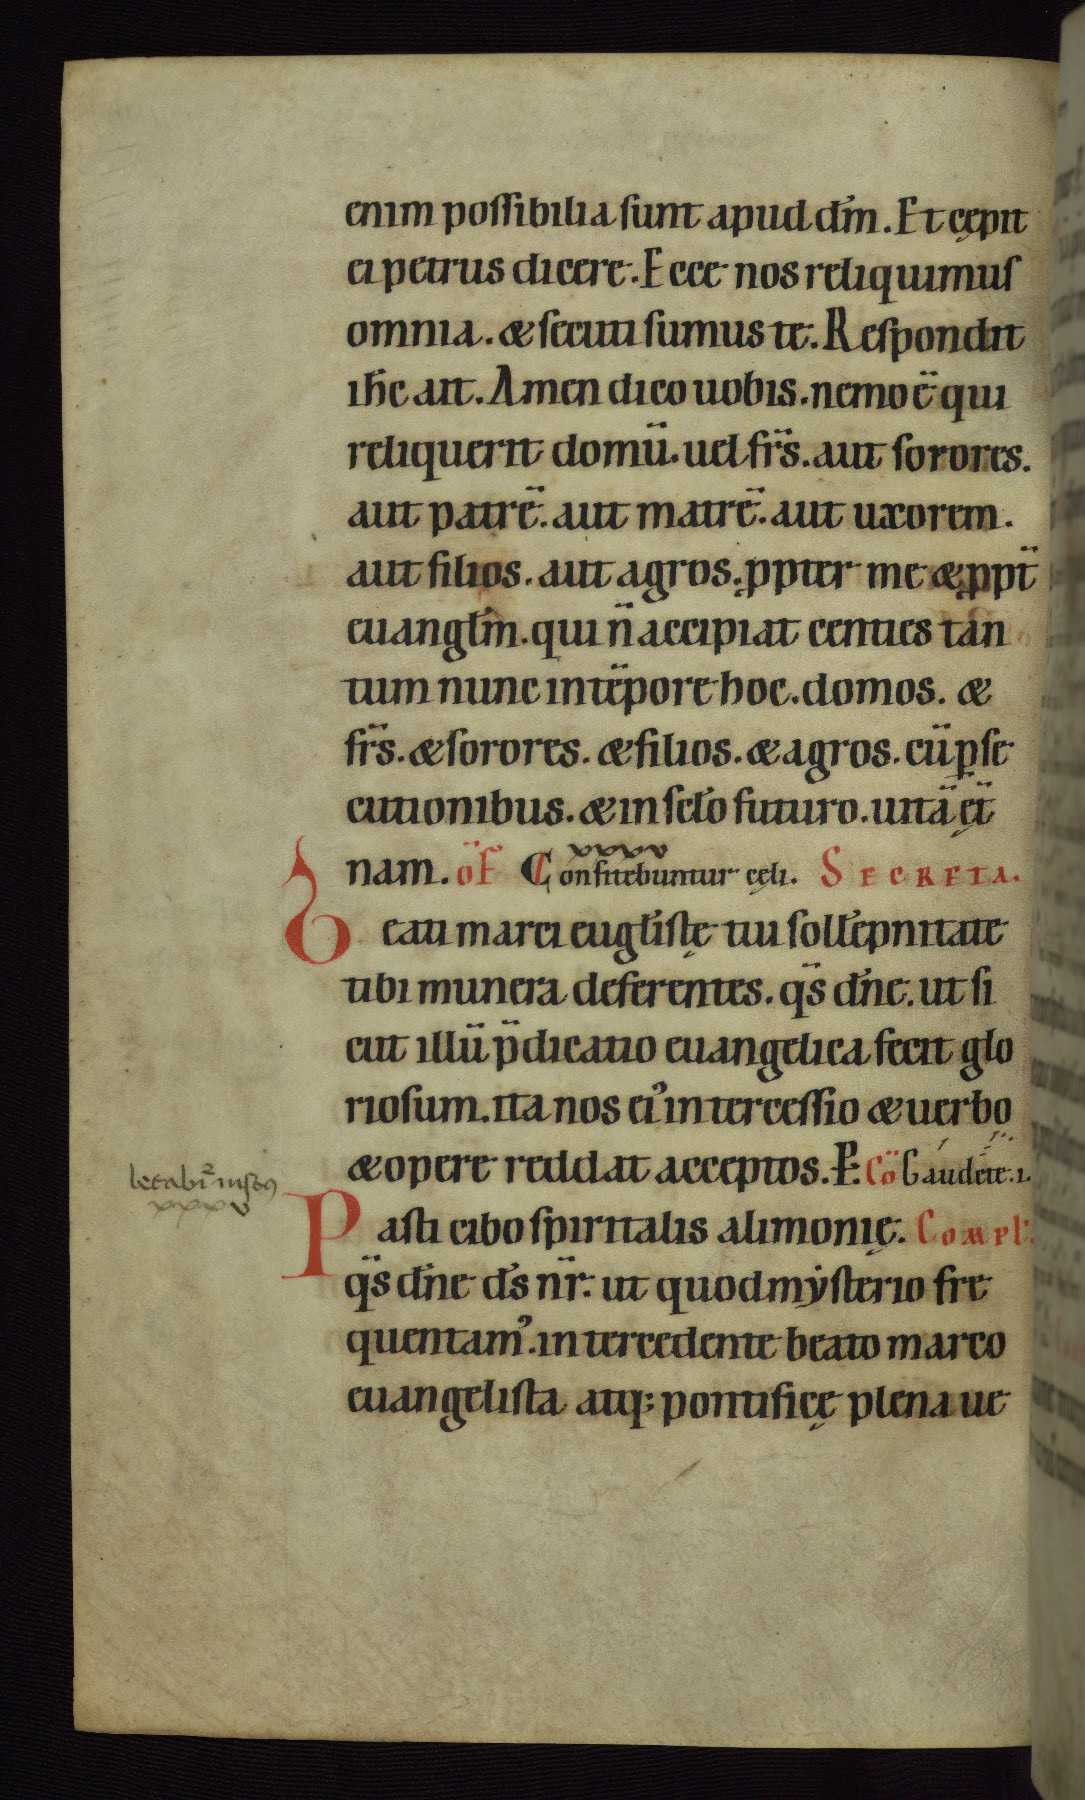 enim possibilia sunt apud dm̄. Et cępit
ei petrus dicere. Ecce nos reliquimus
omnia. & secuti sumus te. Respondit
ih̄c ait. Amen dico uobis. nemo ē qui
reliquerit domū. uel fr̄s. aut sorores.
aut patrē. aut matrē. aut uxorem.
aut filios. aut agros. ꝓpter me & ꝓpt̄
euangl̄m. qui n̄ accipiat centies tan
tum nunc in tēpore hoc. domos. &
fr̄s. & sorores. & filios. & agros. cū ꝑse
cutionibus. & in scl̄o futuro. uitā ęt̄
nam. of̄ Confitebuntur cęli. Secreta.
xxxv
Beati marci eugl̄istę tui soll̄epnitate
tibi munera deferentes. qs̄ dn̄e. ut si
cut illū p̄dicatio euangelica fecit glo
riosum. ita nos ei᾿ intercessio & uerbo
& opere reddat acceptos. P. Cō Gaudete. 1.
letabit᷑ iustꝰ
xxxv
Pasti cibo spiritalis alimonię. Compl̄.
qs̄ dn̄e ds̄ nr̄. ut quod mẏsterio fre
quentam᾿. intercedente beato marco
euangelista atq; pontificę plena ue